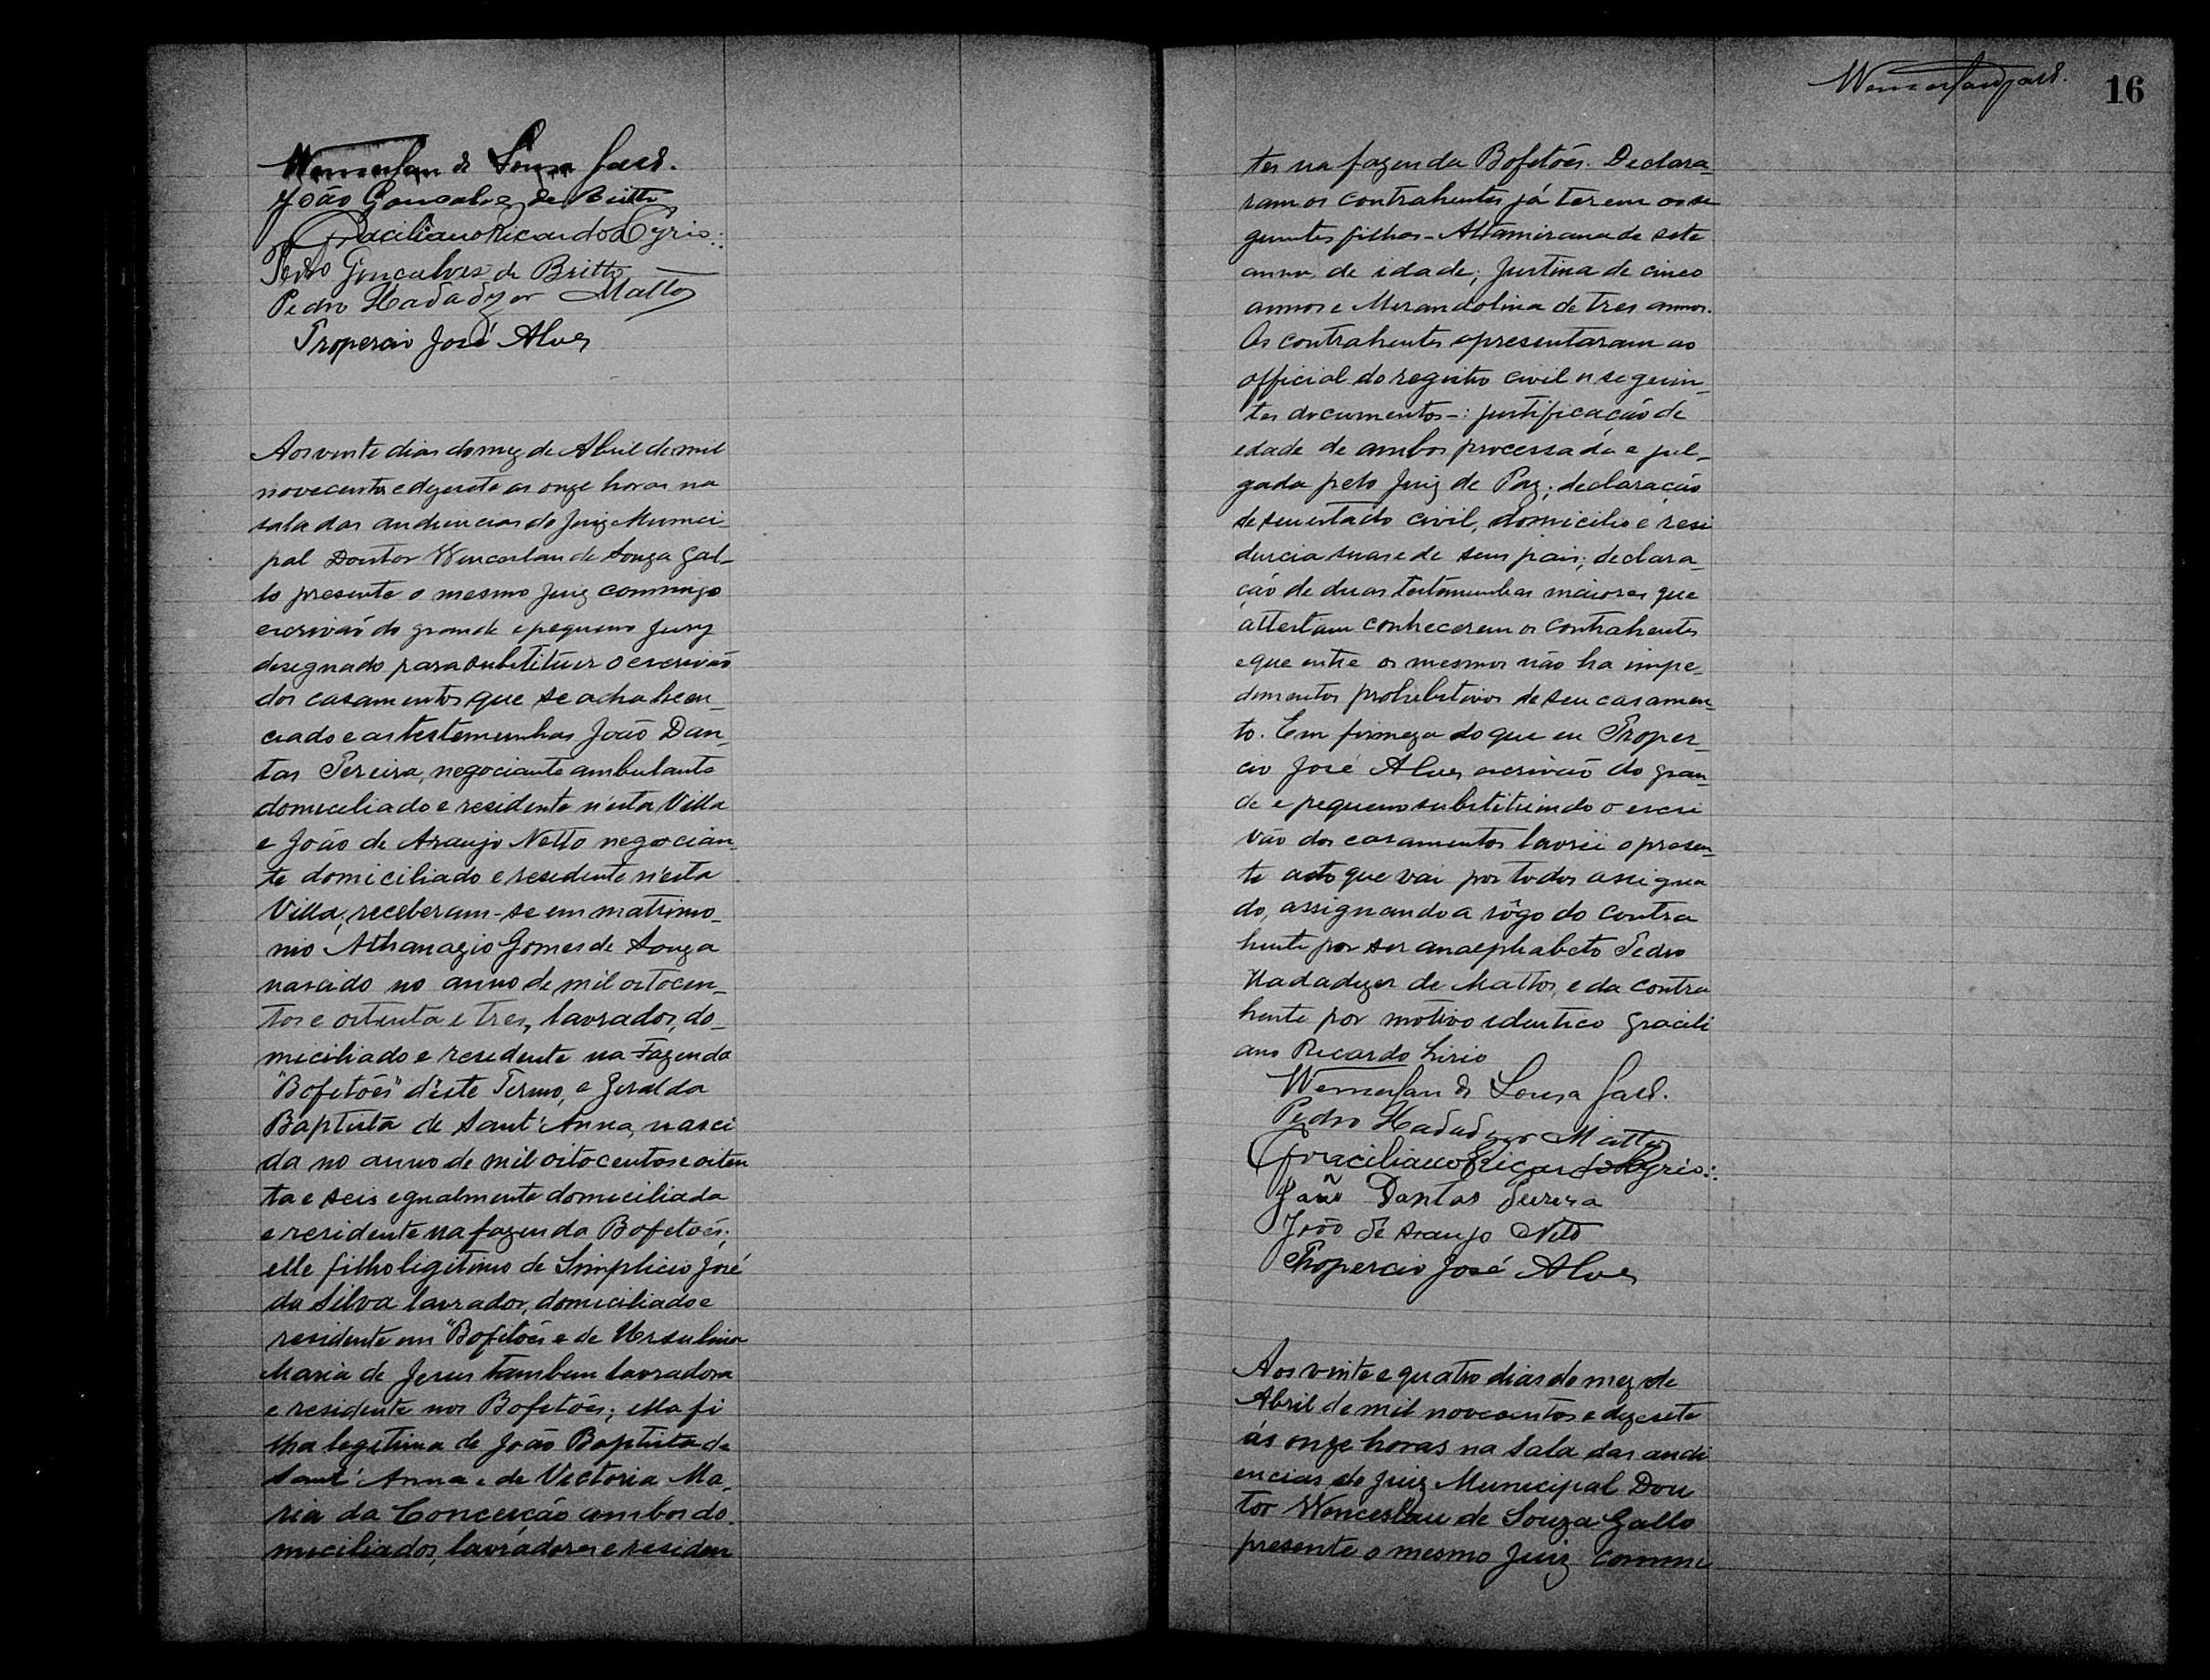 Wenceslau de Souza Gallo.
João Gonsalves de Britto
Graciliano Ricardo Lyrio.
Pedro Gonçalves de Britto
Pedro Hadadyer Mattos
Propercio José Alves
Aos vinte dias do mez de Abril de mil
novecentos e dezesete as onze horas na
sala das audiencias do Juiz Munici
pal Doutor Wenceslau de Souza Gal-
lo presente o mesmo Juiz commigo
escrivão do grande e pequeno Jury
designado para substituir o escrivão
dos casamentos que se acha licen-
ciado e as testemunhas João Dan-
tas Pereira, negociante ambulante
domiciliado e residente n'esta Villa
e João de Araujo Netto negocian-
te domiciliado e residente n'esta
Villa, receberam-se em matrimo-
nio Athanazio Gomes de Souza
nascido no anno de mil oitocen-
tos e oitenta e tres, lavrador, do-
miciliado e residente na Fazenda
"Bofetões" d'este Termo, e Geralda
Baptista de Sant'Anna, nasci
da no anno de mil oitocentos e oiten
ta e seis egualmente domiciliada
e residente na fazenda Bofetões;
elle filho ligitimo de Simplicio José
da Silva lavrador, domiciliado e
residente em "Bofetões e de Ursulina
Maria de Jesus tambem lavradora
e residente nos Bofetões; ella fi
lha legitima de João Baptista de
Sant'Anna e de Victoria Ma-
ria da Conceição ambos do-
miciliados, lavradores e residen
16
tes na fazenda Bofetões. Declara-
ram os contrahentes já terem os se
guintes filhos - Altamirana de sete
annos de idade; Justina de cinco
annos e Merandolina de tres annos.
Os contrahentes apresentaram ao
official do registro civil os seguin-
tes documentos -: justificação de
edade de ambos processada e jul-
gada pelo Juiz de Paz; declaração
de seu estado civil, domicilio e resi
dencia suas e de seus pais; declara-
ção de duas testemunhas maiores que
attestam conhecerem os contrahentes
e que entre os mesmos não ha impe-
dimentos prohibitivos de seu casamen-
to. Em firmeza do que eu Proper-
cio José Alves escrivão do gran-
de e pequeno substituindo o escri
vão dos casamentos lavrei o presen-
te acto que vai por todos assigna
do, assignando a rôgo do contra
hente por ser analphabeto Pedro
Hadadyer de Mattos, e da contra
hente por motivo identico Gracili
ano Ricardo Lirio
Wenceslau de Souza Gallo.
Pedro Hadadyer Mattos
Graciliano Ricardo Lyrio.
João Dantas Pereira
João de Araujo Neto
Propercio José Alves
Aos vinte e quatro dias do mez de
Abril de mil novecentos e dezesete
ás onze horas na sala das audi
encias do Juiz Municipal Dou
tor Wenceslau de Souza Gallo
presente o mesmo Juiz commi